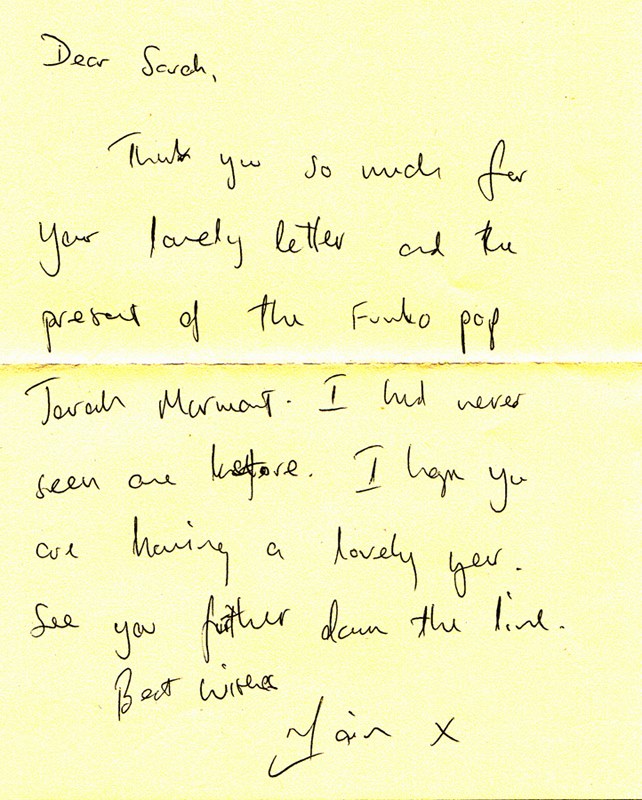 Dear Sarah,
Thank you so much for
your lovely letter and the
present of the Funko pop
Jorah Mormont. I had never
seen one before. I hope you
are having a lovely year.
See you further down the line.
Best wishes
Iain x